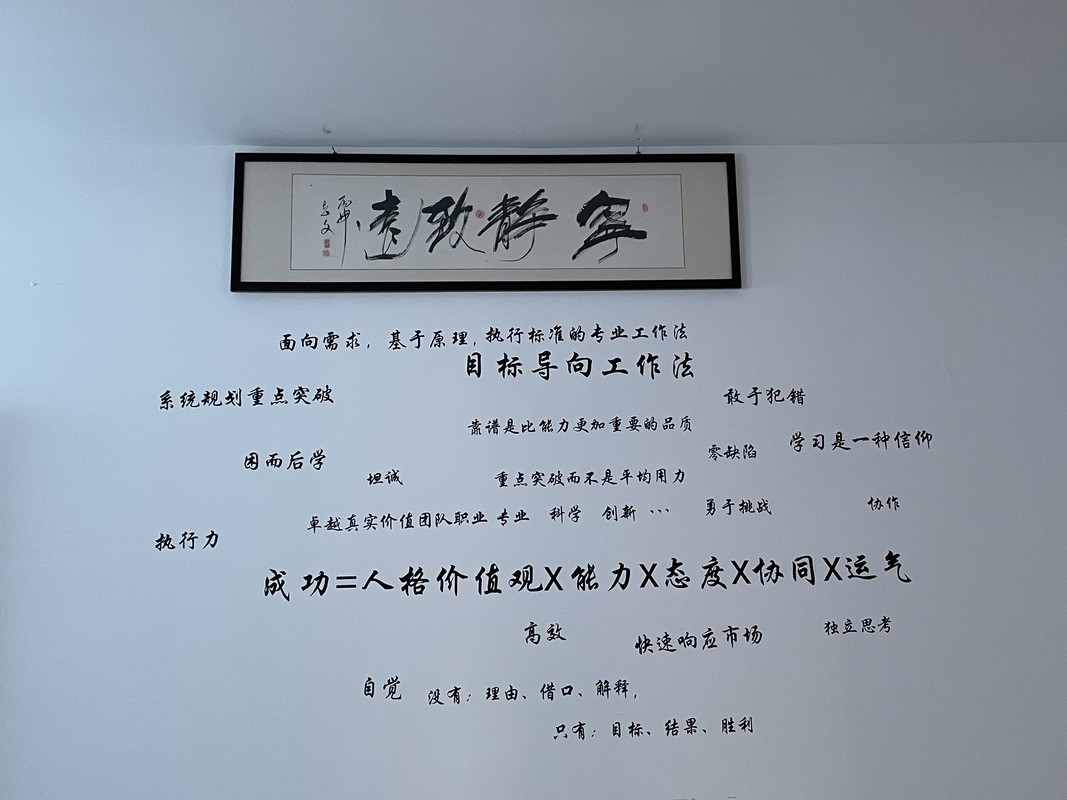 寧靜致遠
丙申
面向需求，基于原理，执行标准的专业工作法
目标导向工作法
系统规划重点突破
敢于犯错
靠谱是比能力更加重要的品质
学习是一种信仰
零缺陷
困而后学
坦诚
重点突破而不是平均用力
卓越真实价值团队职业 专业 科学 创新 …
勇于挑战
协作
执行力
成功=人格价值观X能力X态度X协同X运气
高效
快速响应市场
独立思考
自觉
没有：理由、借口、解释，
只有：目标、结果、胜利